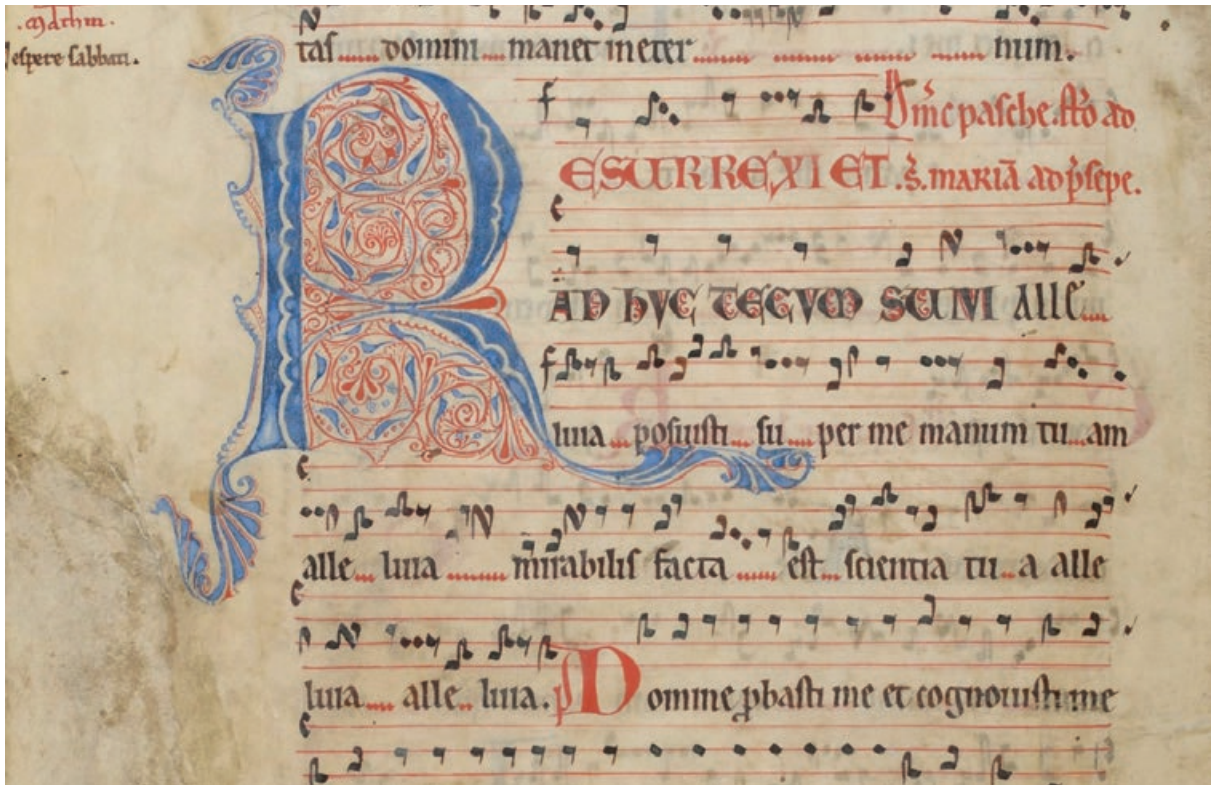 .Mathm.
Vespere sabbati.
tas domini manet in eter num.
Dñic pasche. Stō ad
RESURREXI ET .S. MARIĀ ad p̄sepe.
AD HUC TECUM SUM alle
luia posuisti su per me manum tu am
alle luia mirabilis facta est scientia tu a alle
luia alle luia. ps Domine ꝓbasti me et cognouisti me